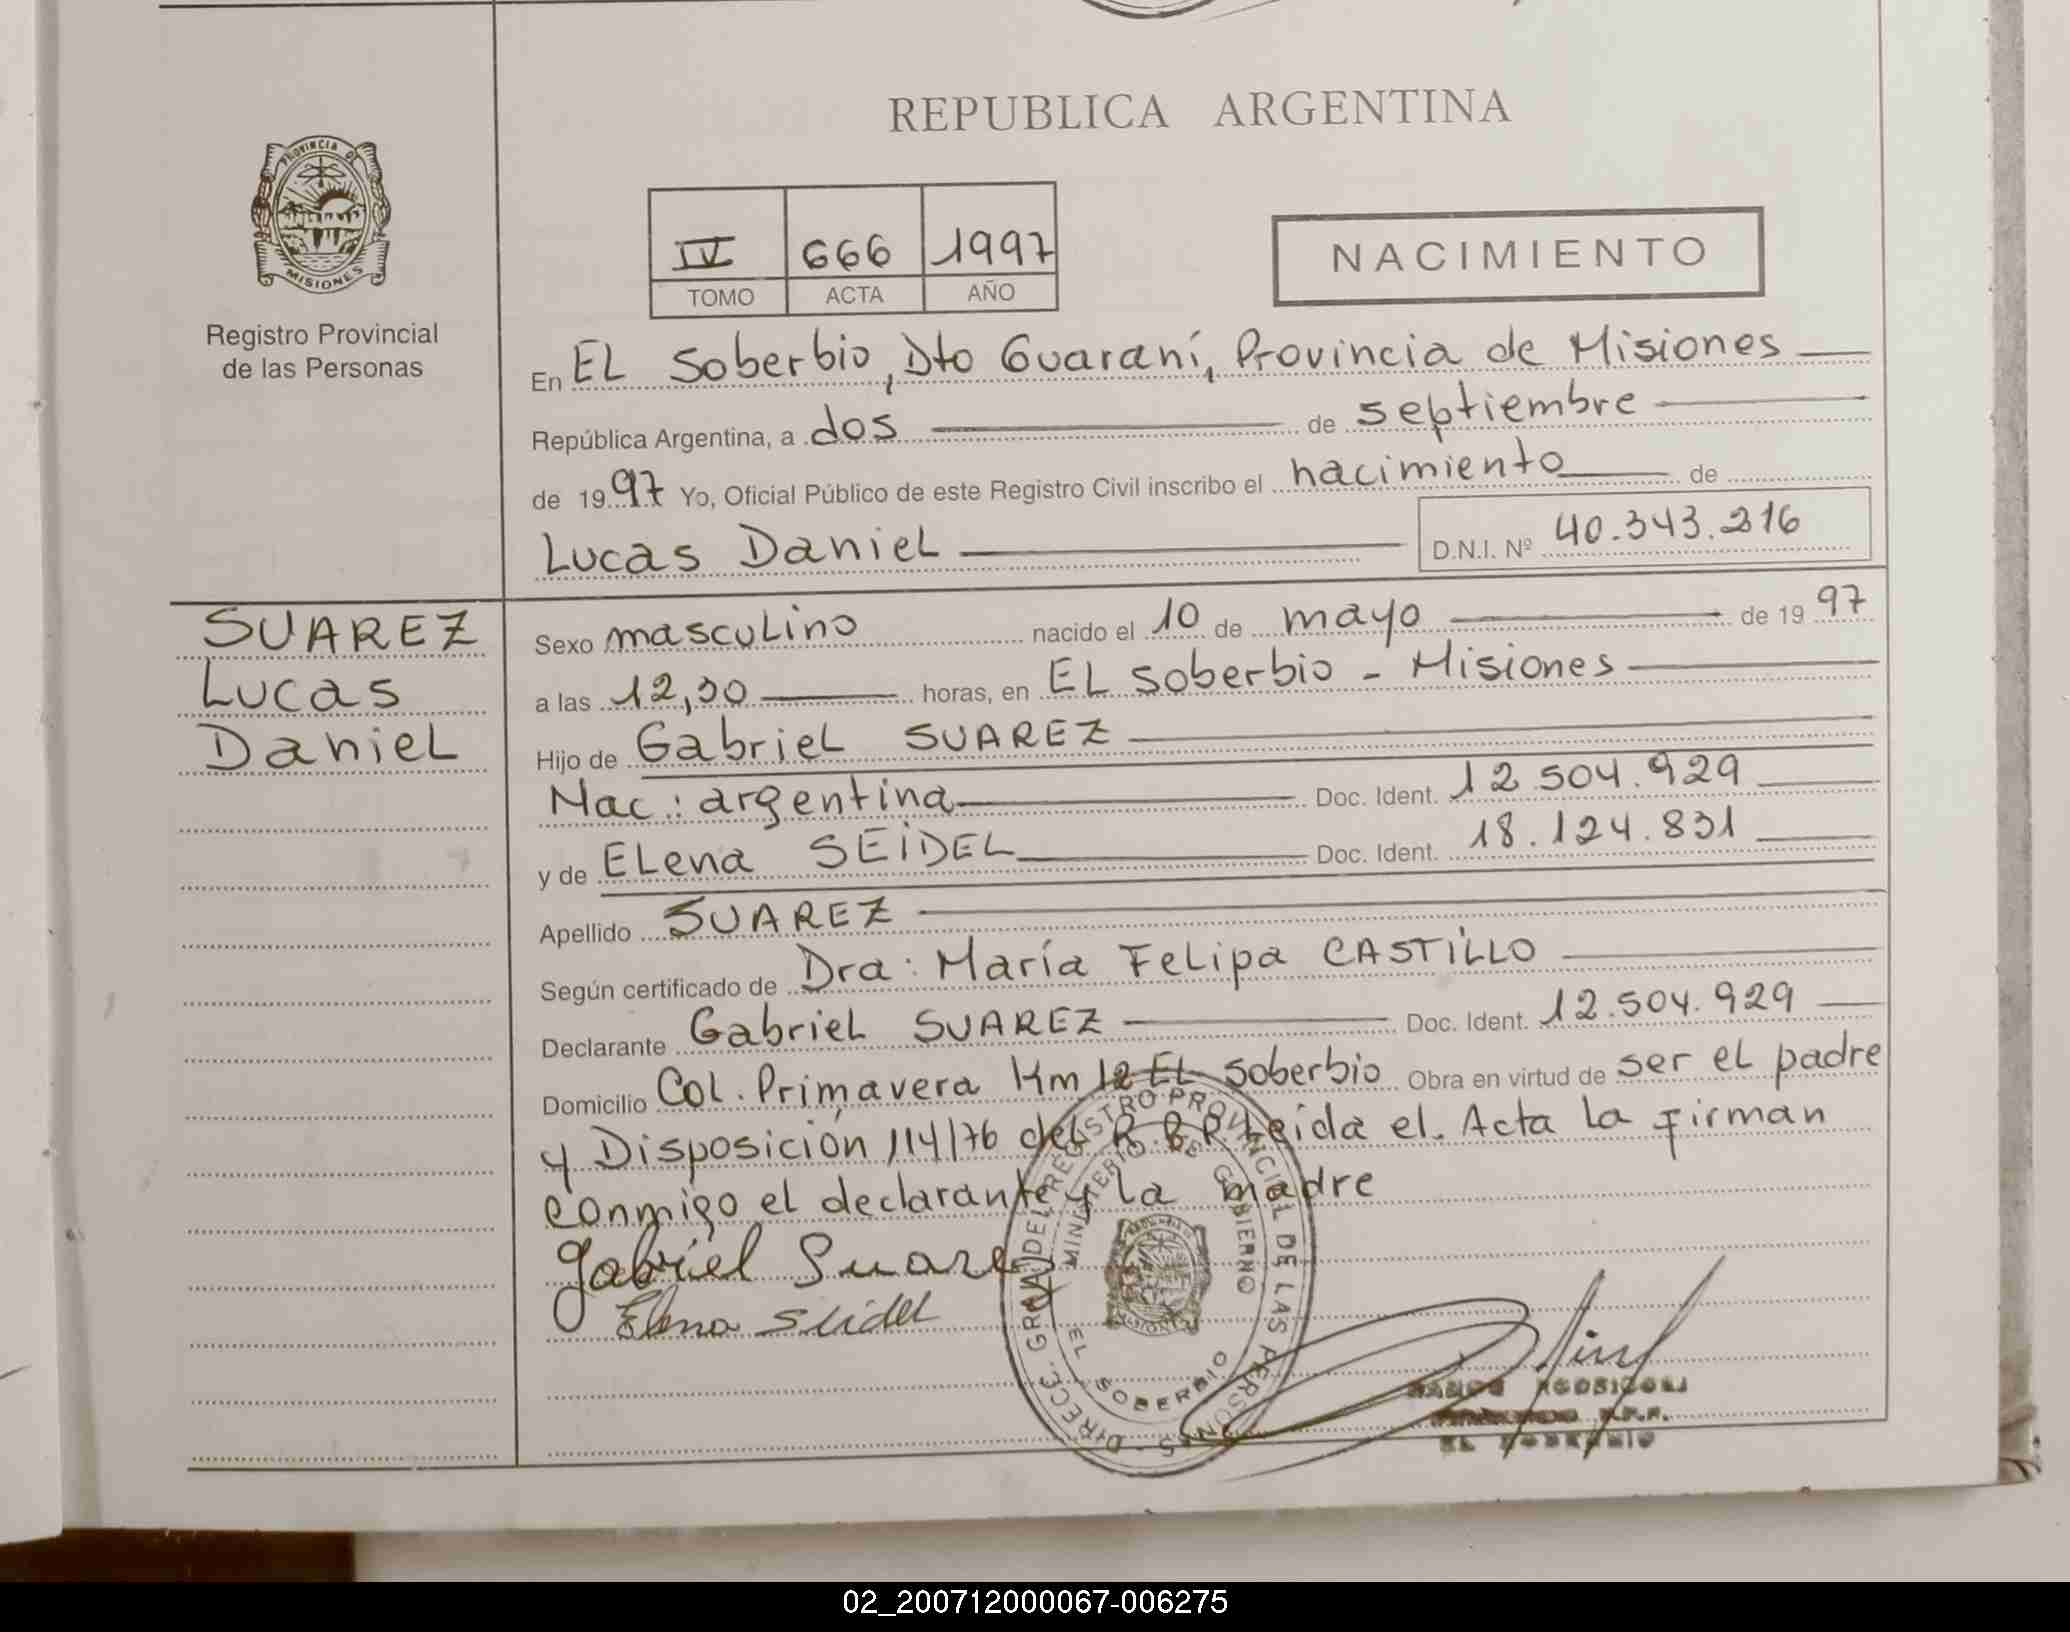 PROVINCIA DE
MISIONES
Registro Provincial
de las Personas
REPUBLICA ARGENTINA
IV 666 1997
TOMO ACTA AÑO
NACIMIENTO
En EL Soberbio, Dto Guaraní, Provincia de Misiones
República Argentina, a dos de septiembre
de 1997 Yo, Oficial Público de este Registro Civil inscribo el nacimiento de
Lucas Daniel D.N.I. Nº 40.343.216
SUAREZ
Lucas
Daniel
Sexo masculino nacido el 10 de mayo de 1997
a las 12,30 horas, en EL Soberbio - Misiones
Hijo de Gabriel SUAREZ
Nac: argentina Doc. Ident. 12.504.929
y de Elena SEIDEL Doc. Ident. 18.124.831
Apellido SUAREZ
Según certificado de Dra: María Felipa CASTILLO
Declarante Gabriel SUAREZ Doc. Ident. 12.504.929
Domicilio Col. Primavera Km 12 EL Soberbio Obra en virtud de ser el padre
y Disposición 114/76 del R.P.P. Leida el Acta la firman
conmigo el declarante y la madre
Gabriel Suarez
Elena Seidel
DIRECC. GRAL DEL REGISTRO PROVINCIAL DE LAS PERSONAS
MINISTERIO DE GOBIERNO
EL SOBERBIO
EL SOBERBIO
02_200712000067-006275